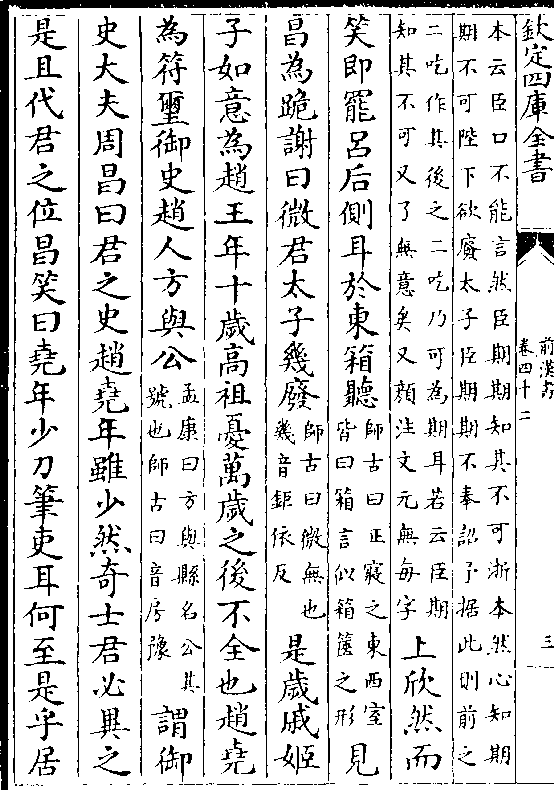 欽定四庫全書
前漢書
卷四十二
三
本云臣口不能言然臣期期知其不可浙本然心知期
期不可陛下欲廢太子臣期期不奉詔予据此則前之
二吃作其後之二吃乃可為期耳若云臣期
知其不可又了無意矣又顔注文元無每字
上欣然而
笑即罷吕后側耳於東箱聽
師古曰正寢之東西室
皆曰箱言似箱篋之形
見
昌為跪謝曰微君太子幾廢
師古曰微無也
幾音鉅依反
是歲戚姬
子如意為趙王年十歲高祖憂萬歲之後不全也趙堯
為符璽御史趙人方與公
孟康曰方與縣名公其
號也師古曰音房豫
謂御
史大夫周昌曰君之史趙堯年雖少然奇士君必異之
是且代君之位昌笑曰堯年少刀筆吏耳何至是乎居